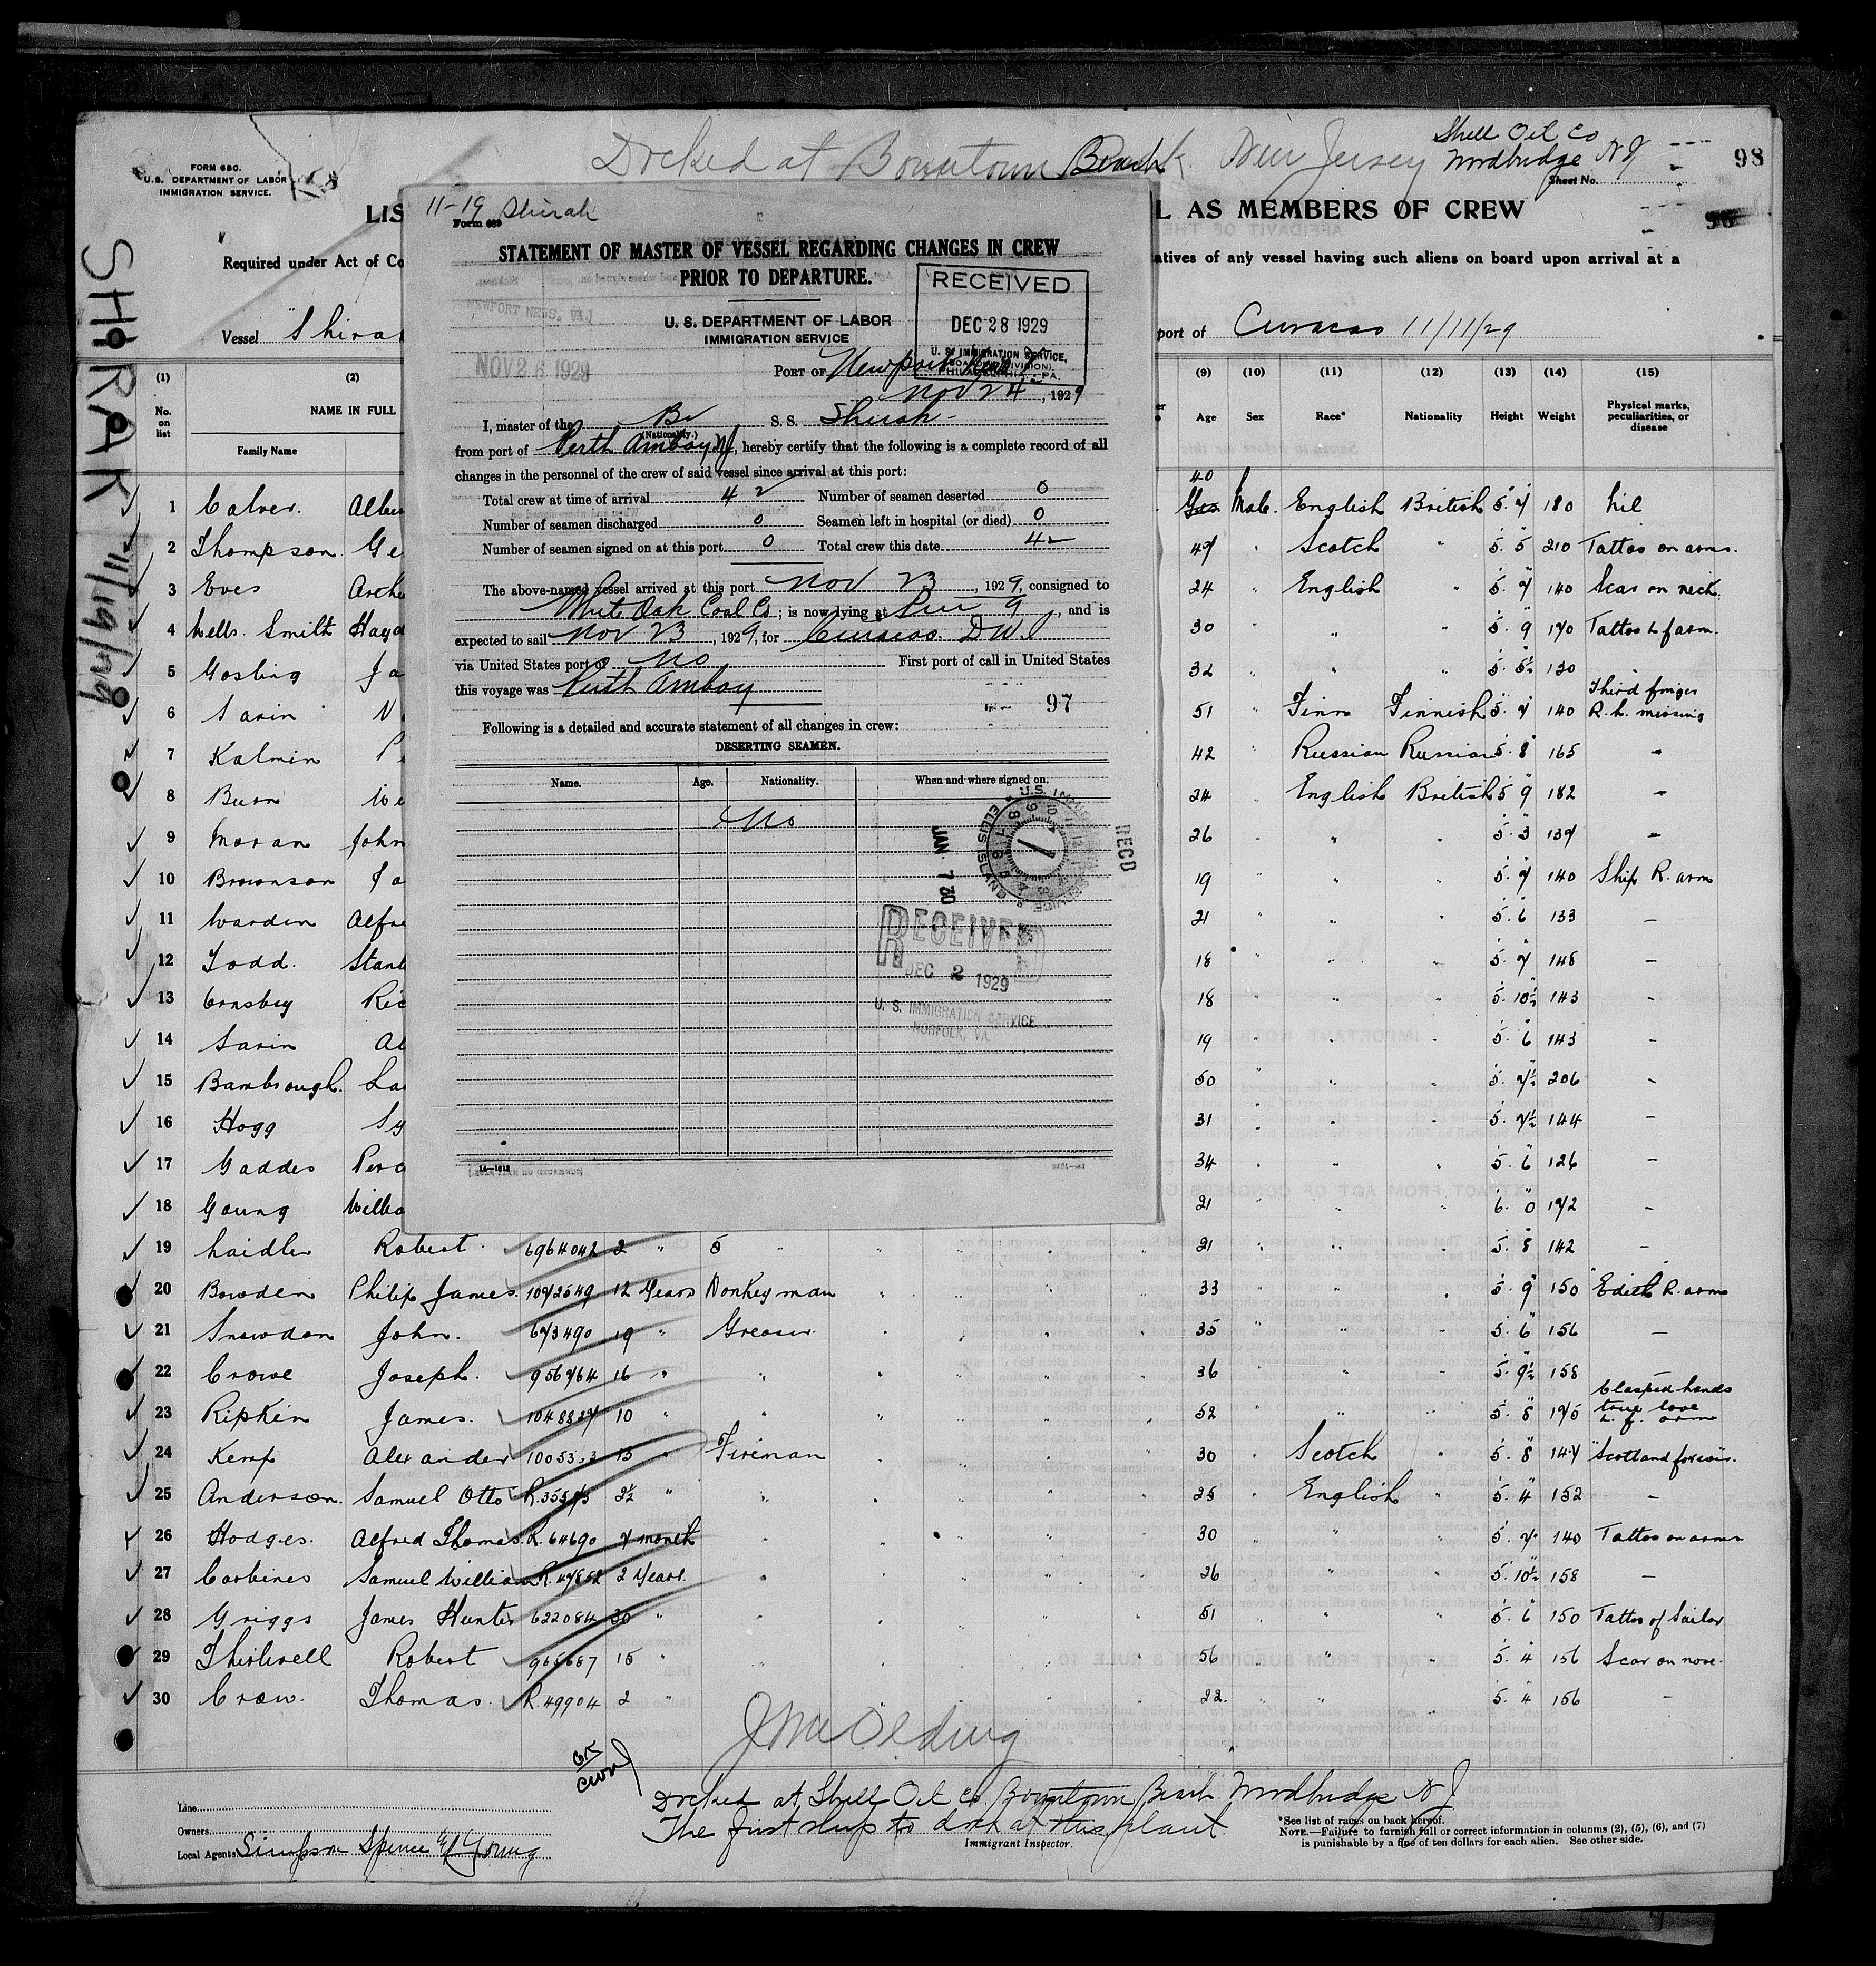 Docked at Boyntown Beach New Jersey
Shell Oil Co
Woodbridge NJ
Sheet No.
98
FORM 680.
U.S. DEPARTMENT OF LABOR
IMMIGRATION SERVICE.
LIS
L AS MEMBERS OF CREW
Required under Act of Co
atives of any vessel having such aliens on board upon arrival at a
Vessel Shira
port of Curacao 11/11/29
SHIRAK 11/19/29
11-19 Shirak
Form 689
STATEMENT OF MASTER OF VESSEL REGARDING CHANGES IN CREW
PRIOR TO DEPARTURE.
U. S. DEPARTMENT OF LABOR
IMMIGRATION SERVICE
RECEIVED
DEC 28 1929
U. S. IMMIGRATION SERVICE,
PHILADELPHIA, PA.
NEWPORT NEWS, VA.
NOV 26 1929
PORT OF Newport News
Nov 24, 1929
I, master of the Br S. S. Shirak
(Nationality.)
from port of Perth Amboy NJ, hereby certify that the following is a complete record of all
changes in the personnel of the crew of said vessel since arrival at this port:
Total crew at time of arrival 42 Number of seamen deserted 0
Number of seamen discharged 0 Seamen left in hospital (or died) 0
Number of seamen signed on at this port 0 Total crew this date 42
The above-named vessel arrived at this port Nov 23, 1929, consigned to
White Oak Coal Co; is now lying at Pier 9, and is
expected to sail Nov 23, 1929, for Curacao D.W.I
via United States port of No First port of call in United States
this voyage was Perth Amboy
97
Following is a detailed and accurate statement of all changes in crew:
DESERTING SEAMEN.
Name. Age. Nationality. When and where signed on.
No
JAN 7 30
RECD
RECEIVED
DEC 2 1929
U. S. IMMIGRATION SERVICE
NORFOLK, VA.
14—1012
(1) (2) (9) (10) (11) (12) (13) (14) (15)
No. on list NAME IN FULL Age Sex Race* Nationality Height Weight Physical marks, peculiarities, or disease
Family Name
1 Calver. Alber 40 Male. English British 5.7 180 Nil
2 Thompson. Ge 47 " Scotch " 5.5 210 Tattoo on arms.
3 Eves Arch 24 " English " 5.7 140 Scar on neck.
4 Wells. Smith Hayd 30 " " " 5.9 170 Tattoo L farm.
5 Gosling Ja 32 " " " 5.5½ 130 -
6 Sarin N 51 " Finn Finnish 5.7 140 Third finger R.h. missing
7 Kalmin P 42 Russian Russian 5.8 165 -
8 Burn We 24 English British 5 9 182 -
9 Moran John 26 " " " 5.3 137 -
10 Brownson Ja 19 " " 5.7 140 Ship R. arm
11 Warden Alfre 21 " " " 5.6 133 -
12 Todd. Stanl 18 " " " 5.7 148 -
13 Ornsby Ric 18 " " " 5.10½ 143 -
14 Sarin Al 19 " " " 5.6 143 -
15 Bambrough. La 50 " " " 5.7½ 206 -
16 Hogg Sy 31 " " " 5.7½ 144 -
17 Gaddes Perc 34 " " " 5.6 126 -
18 Young Willia 21 " " " 6.0 172 -
19 Laidler Robert. 6964042 2 " 5 " 21 " " " 5.8 142 -
20 Bowden Philip James. 1072549 12 Years Donkeyman 33 " " " 5.9 150 "Edith R. arm
21 Snowdon John. 673490 19 " Greaser 35 " " " 5.6 156 -
22 Crowe Joseph. 956764 16 " " 36 " " 5.9½ 158 -
23 Ripkin James. 1048827 10 " " 52 " " " 5.8 175 Clasped hands true love L. f. arm
24 Kemp Alexander 13 " Fireman 30 " Scotch " 5.8 147 "Scotland forever.
25 Anderson. Samuel Otto 2½ " " 25 " English " 5.4 152 -
26 Hodges. Alfred Thomas. R. 64690 7 month " 30 " " " 5.7 140 Tattoo on arms
27 Carbines Samuel William R. 47852 2 Years. " 26 " " " 5.10½ 158 -
28 Griggs James Hunter 622084 30 " " 51 " " " 5.6 150 Tattoo of Sailor
29 Thirlwell Robert 965667 15 " " 56 " " 5.4 156 Scar on nose.
30 Crow. Thomas. R. 49904 2 " " 22. " " 5.4 156 -
Docked at Shell Oil Co. Boyntown Beach Woodbridge NJ
The first ship to dock at this plant
Immigrant Inspector.
Line
Owners
Local Agents Simpson Spence & Young
*See list of races on back hereof.
NOTE.—Failure to furnish full or correct information in columns (2), (5), (6), and (7)
is punishable by a fine of ten dollars for each alien. See other side.